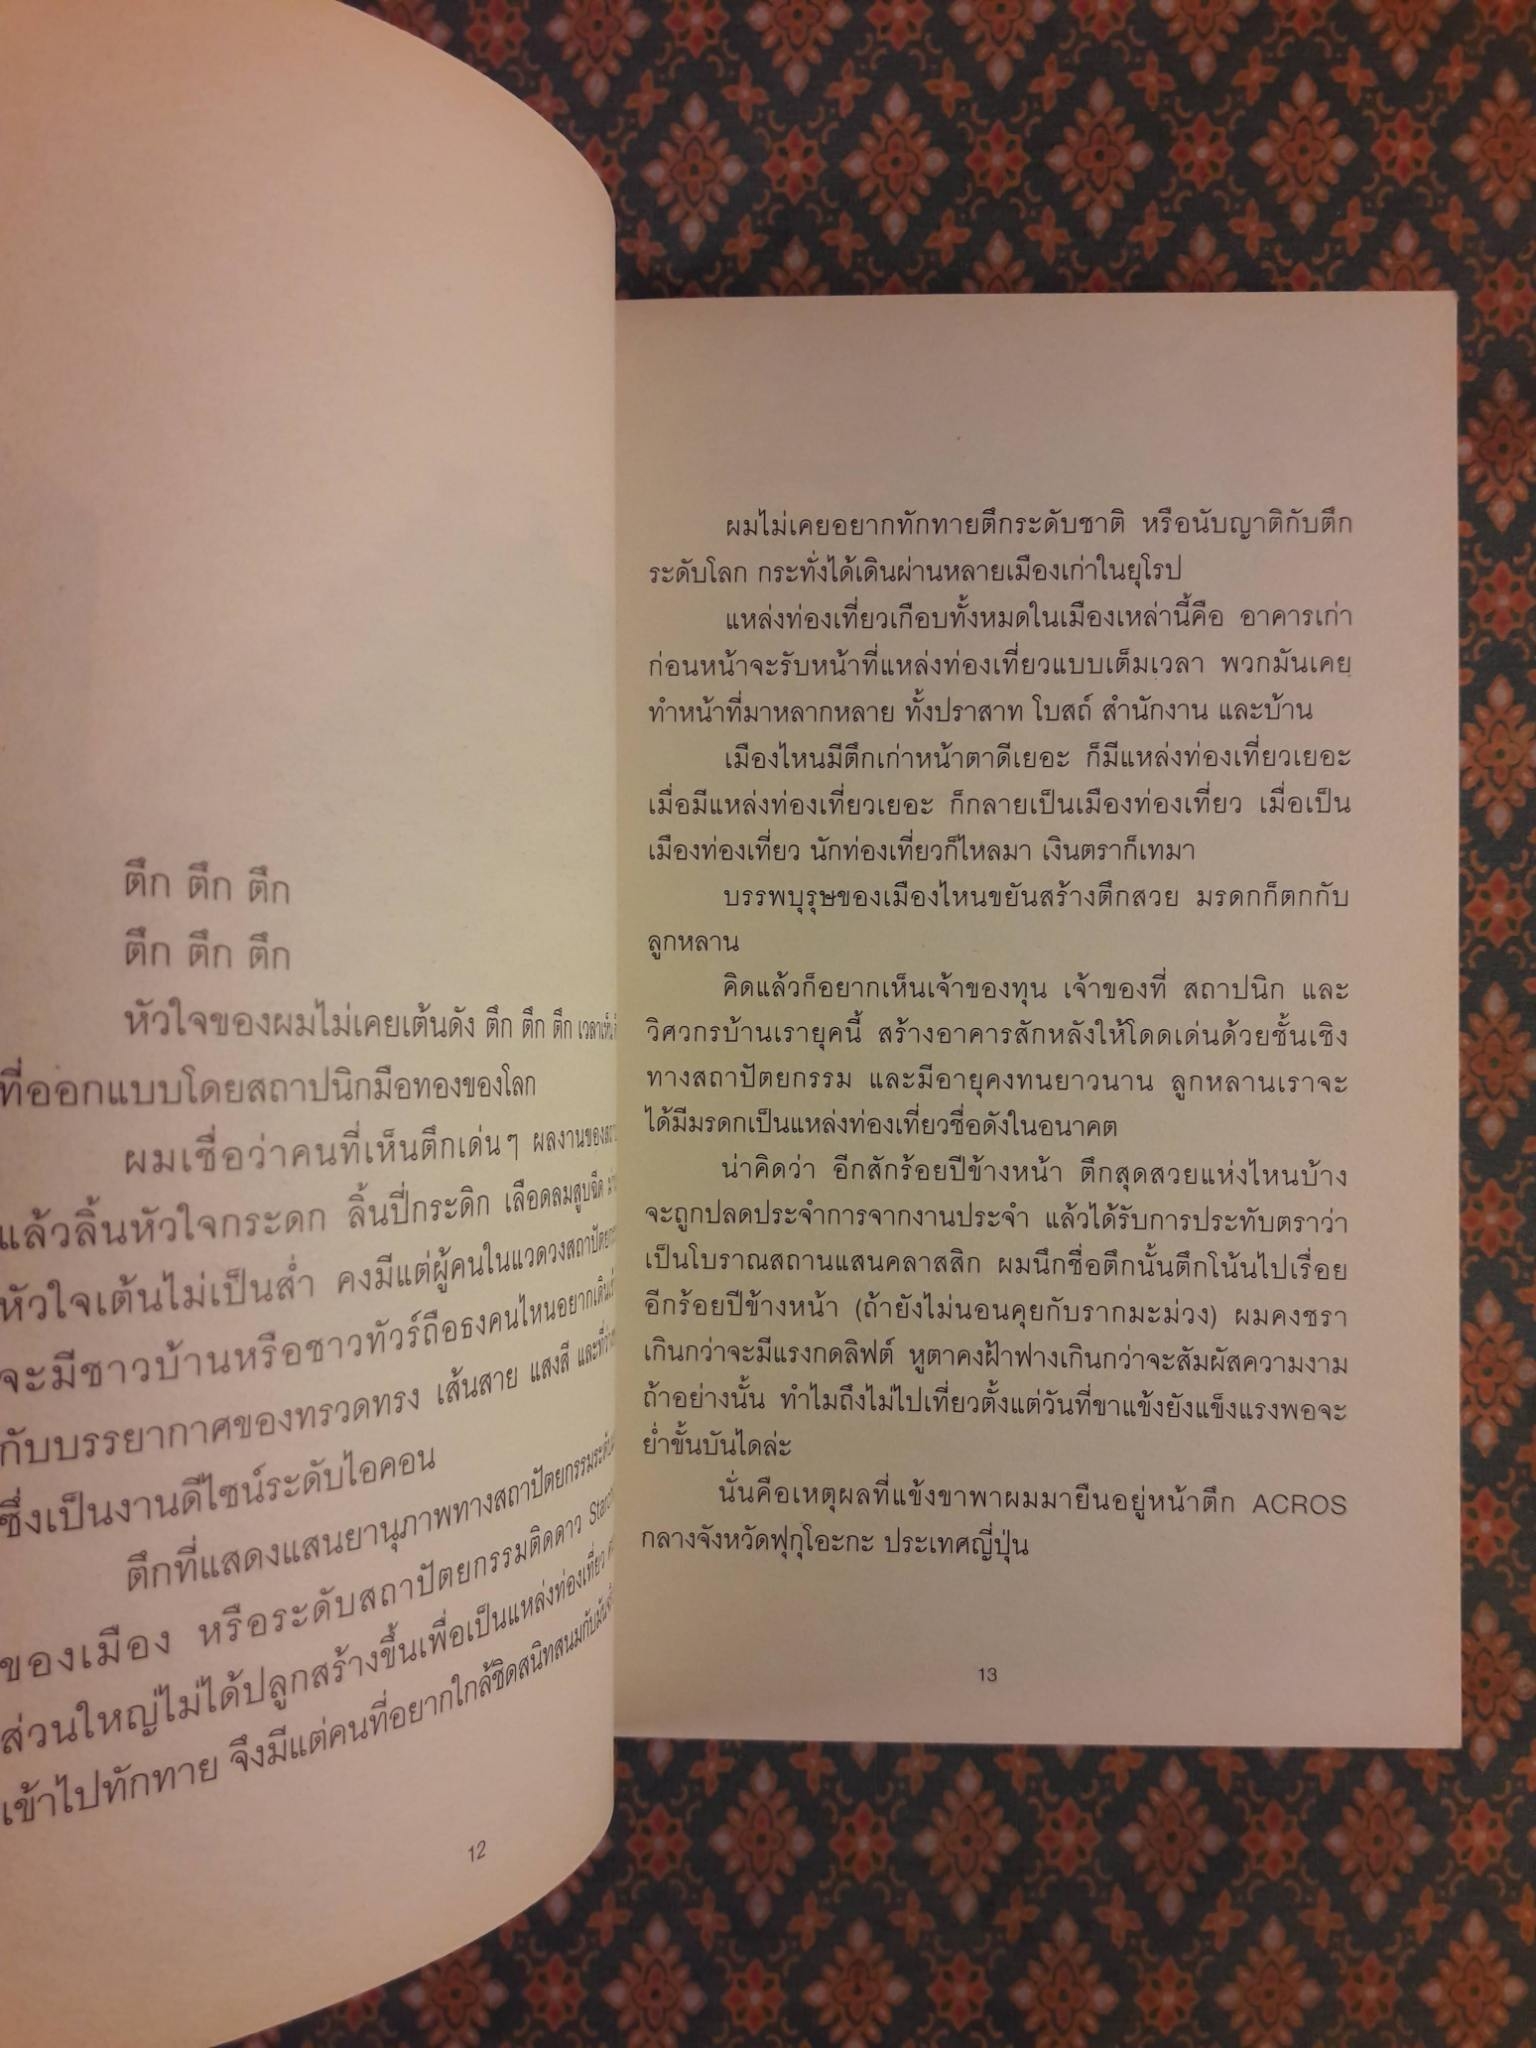 ตึก ตึก ตึก
ตึก ตึก ตึก
หัวใจของผมไม่เคยเต้นดัง ตึก ตึก ตึก เวลาเห็น
ที่ออกแบบโดยสถาปนิกมือทองของโลก
ผมเชื่อว่าคนที่เห็นตึกเด่นๆ ผลงานของ
แล้วลิ้นหัวใจกระดก ลิ้นปี่กระดิก เลือดลมสูบฉีด
หัวใจเต้นไม่เป็นส่ำ คงมีแต่ผู้คนในแวดวง
จะมีชาวบ้านหรือชาวทัวร์ถือธงคนไหนอยากเดิน
กับบรรยากาศของทรวดทรง เส้นสาย แสงสี และ
ซึ่งเป็นงานดีไซน์ระดับไอคอน
ตึกที่แสดงแสนยานุภาพทางสถาปัตยกรรม
ของเมือง หรือระดับสถาปัตยกรรมติดดาว
ส่วนใหญ่ไม่ได้ปลูกสร้างขึ้นเพื่อเป็นแหล่งท่องเที่ยว
เข้าไปทักทาย จึงมีแต่คนที่อยากใกล้ชิดสนิทสนมกับมัน
12
ผมไม่เคยอยากทักทายตึกระดับชาติ หรือนับญาติกับตึก
ระดับโลก กระทั่งได้เดินผ่านหลายเมืองเก่าในยุโรป
แหล่งท่องเที่ยวเกือบทั้งหมดในเมืองเหล่านี้คือ อาคารเก่า
ก่อนหน้าจะรับหน้าที่แหล่งท่องเที่ยวแบบเต็มเวลา พวกมันเคย
ทำหน้าที่มาหลากหลาย ทั้งปราสาท โบสถ์ สำนักงาน และบ้าน
เมืองไหนมีตึกเก่าหน้าตาดีเยอะ ก็มีแหล่งท่องเที่ยวเยอะ
เมื่อมีแหล่งท่องเที่ยวเยอะ ก็กลายเป็นเมืองท่องเที่ยว เมื่อเป็น
เมืองท่องเที่ยว นักท่องเที่ยวก็ไหลมา เงินตราก็เทมา
บรรพบุรุษของเมืองไหนขยันสร้างตึกสวย มรดกก็ตกกับ
ลูกหลาน
คิดแล้วก็อยากเห็นเจ้าของทุน เจ้าของที่ สถาปนิก และ
วิศวกรบ้านเรายุคนี้ สร้างอาคารสักหลังให้โดดเด่นด้วยชั้นเชิง
ทางสถาปัตยกรรม และมีอายุคงทนยาวนาน ลูกหลานเราจะ
ได้มีมรดกเป็นแหล่งท่องเที่ยวชื่อดังในอนาคต
น่าคิดว่า อีกสักร้อยปีข้างหน้า ตึกสุดสวยแห่งไหนบ้าง
จะถูกปลดประจำการจากงานประจำ แล้วได้รับการประทับตราว่า
เป็นโบราณสถานแสนคลาสสิก ผมนึกชื่อตึกนั้นตึกโน้นไปเรื่อย
อีกร้อยปีข้างหน้า (ถ้ายังไม่นอนคุยกับรากมะม่วง) ผมคงชรา
เกินกว่าจะมีแรงกดลิฟต์ หูตาคงฝ้าฟางเกินกว่าจะสัมผัสความงาม
ถ้าอย่างนั้น ทำไมถึงไม่ไปเที่ยวตั้งแต่วันที่ขาแข้งยังแข็งแรงพอจะ
ย่ำขั้นบันไดล่ะ
นั่นคือเหตุผลที่แข้งขาพาผมมายืนอยู่หน้าตึก ACROS
กลางจังหวัดฟุกุโอะกะ ประเทศญี่ปุ่น
13